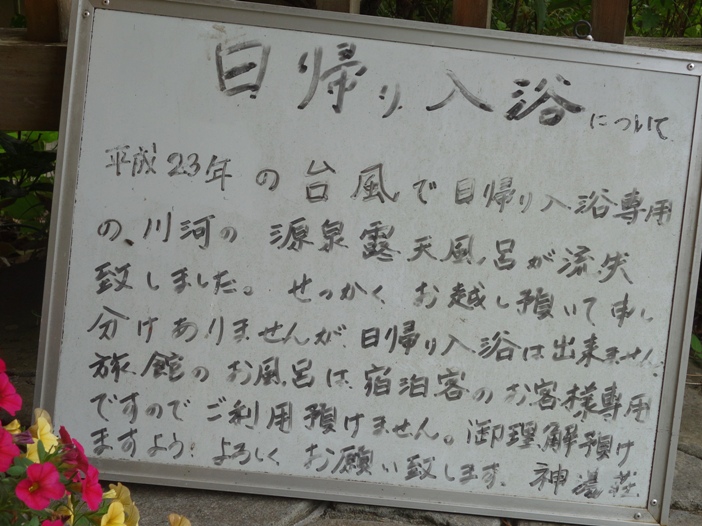 日帰り入浴について
平成23年の台風で日帰り入浴専用
の、川河の源泉露天風呂が流失
致しました。せっかくお越し預いて申し
分けありませんが、日帰り入浴は出来ません
旅館のお風呂は宿泊客のお客様専用
ですのでご利用預けません。御理解預け
ますよう!よろしくお願い致します。神湯荘